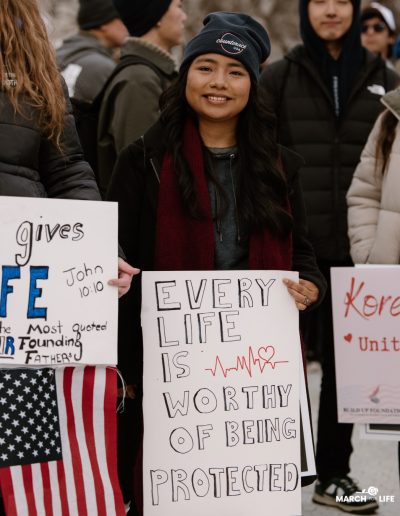 counterculture
gives
FE
John
10:10
the Most Quoted
OUR Founding
Fathers!
EVERY
LIFE
IS
WORTHY
OF BEING
PROTECTED
Kore
Unit
BUILD UP FOUNDATION
MARCH FOR LIFE